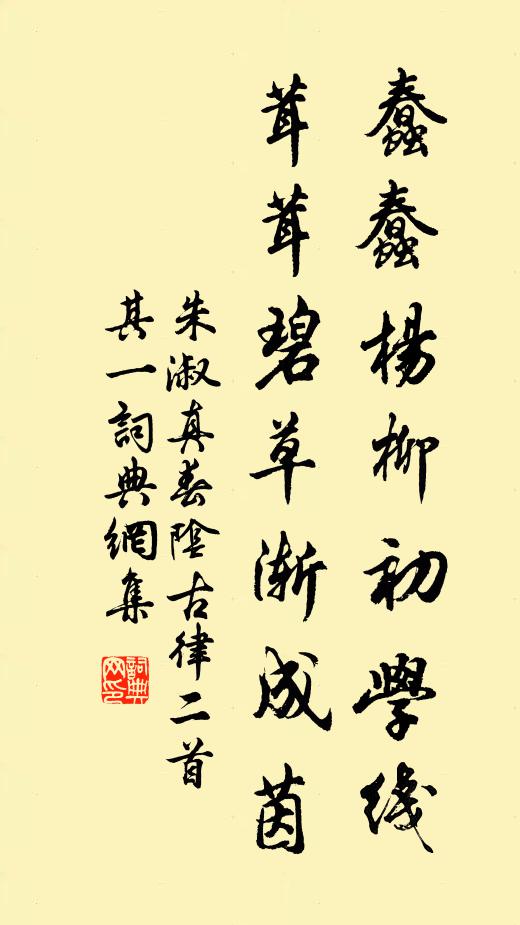 蠢蠢楊柳初學綫
茸茸碧草漸成茵
朱淑真春陰古律二首
其一詞典網集
詞典网印